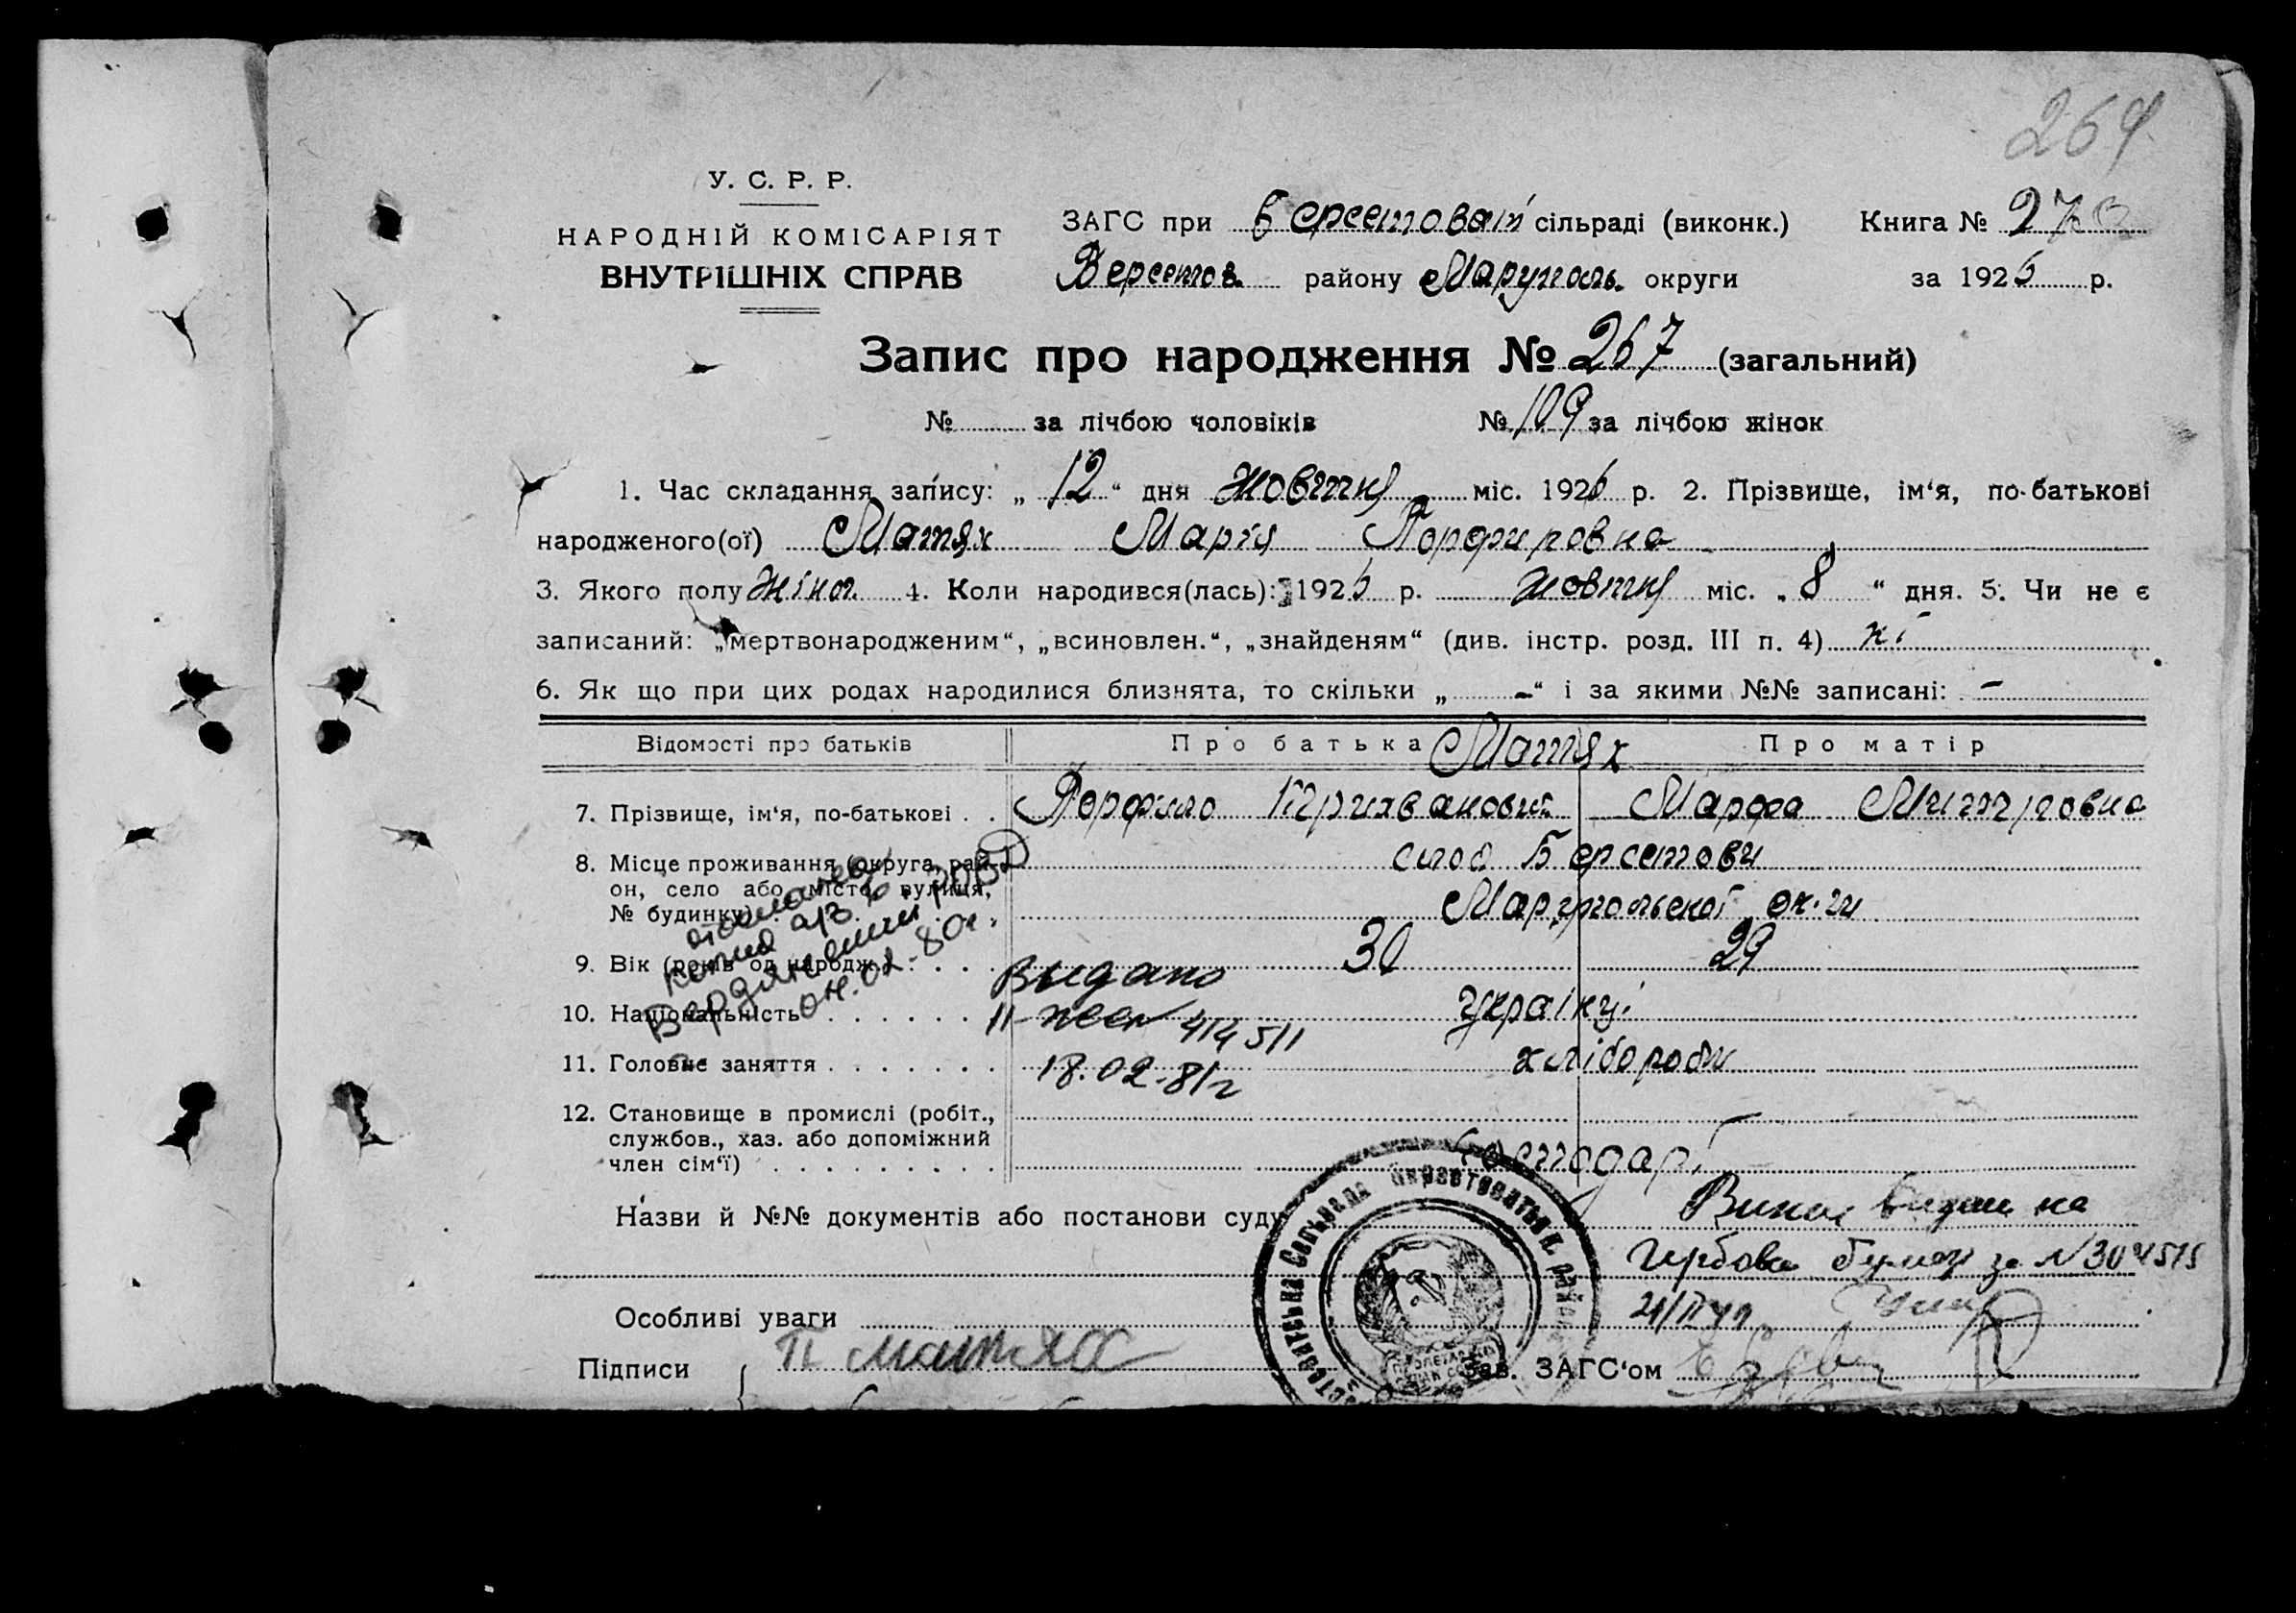 264
У. С. Р. Р.
НАРОДНІЙ КОМІСАРІЯТ
ВНУТРІШНІХ СПРАВ
ЗАГС при Берестовай сільраді (виконк.) Книга № 270
Берестов. району Маруполь. округи за 1926 р.
Запис про народження № 267 (загальний)
№ за лічбою чоловіків № 109 за лічбою жінок
1. Час складання запису: „ 12 “ дня жовтня міс. 1926 р. 2. Прізвище, ім‘я, по-батькові
народженого(ої) Матях Марія Порфировна
3. Якого полу жіноч. 4. Коли народився(лась): 1926 р. жовтня міс. „ 8 “ дня. 5. Чи не є
записаний: „мертвонародженим“, „всиновлен.“, „знайденям“ (див. інстр. розд. III п. 4) ні
6. Як що при цих родах народилися близнята, то скільки „ – “ і за якими №№ записані: –
Відомості про батьків Про батька Матях Про матір
7. Прізвище, ім‘я, по-батькові . . Марфа Митровна
8. Місце проживання (округа, рай-
он, село або місто, вулиця,
№ будинку)
слоб Берестови
Маріупольскої ок-ги
9. Вік (років од народж.) . . . 30 29
10. Національність . . . . . . Українці
11. Головне заняття . . . . . . . хлібороби
12. Становище в промислі (робіт.,
службов., хаз. або допоміжний
член сім‘ї) . . . . . . . . .
Господарі
копия а/з
Бердянский
04.02.80г.
Выдано
414511
18.02-81г
Назви й №№ документів або постанови суду
на
за N 304515
Особливі уваги
Підписи П Матях Зав. ЗАГС‘ом